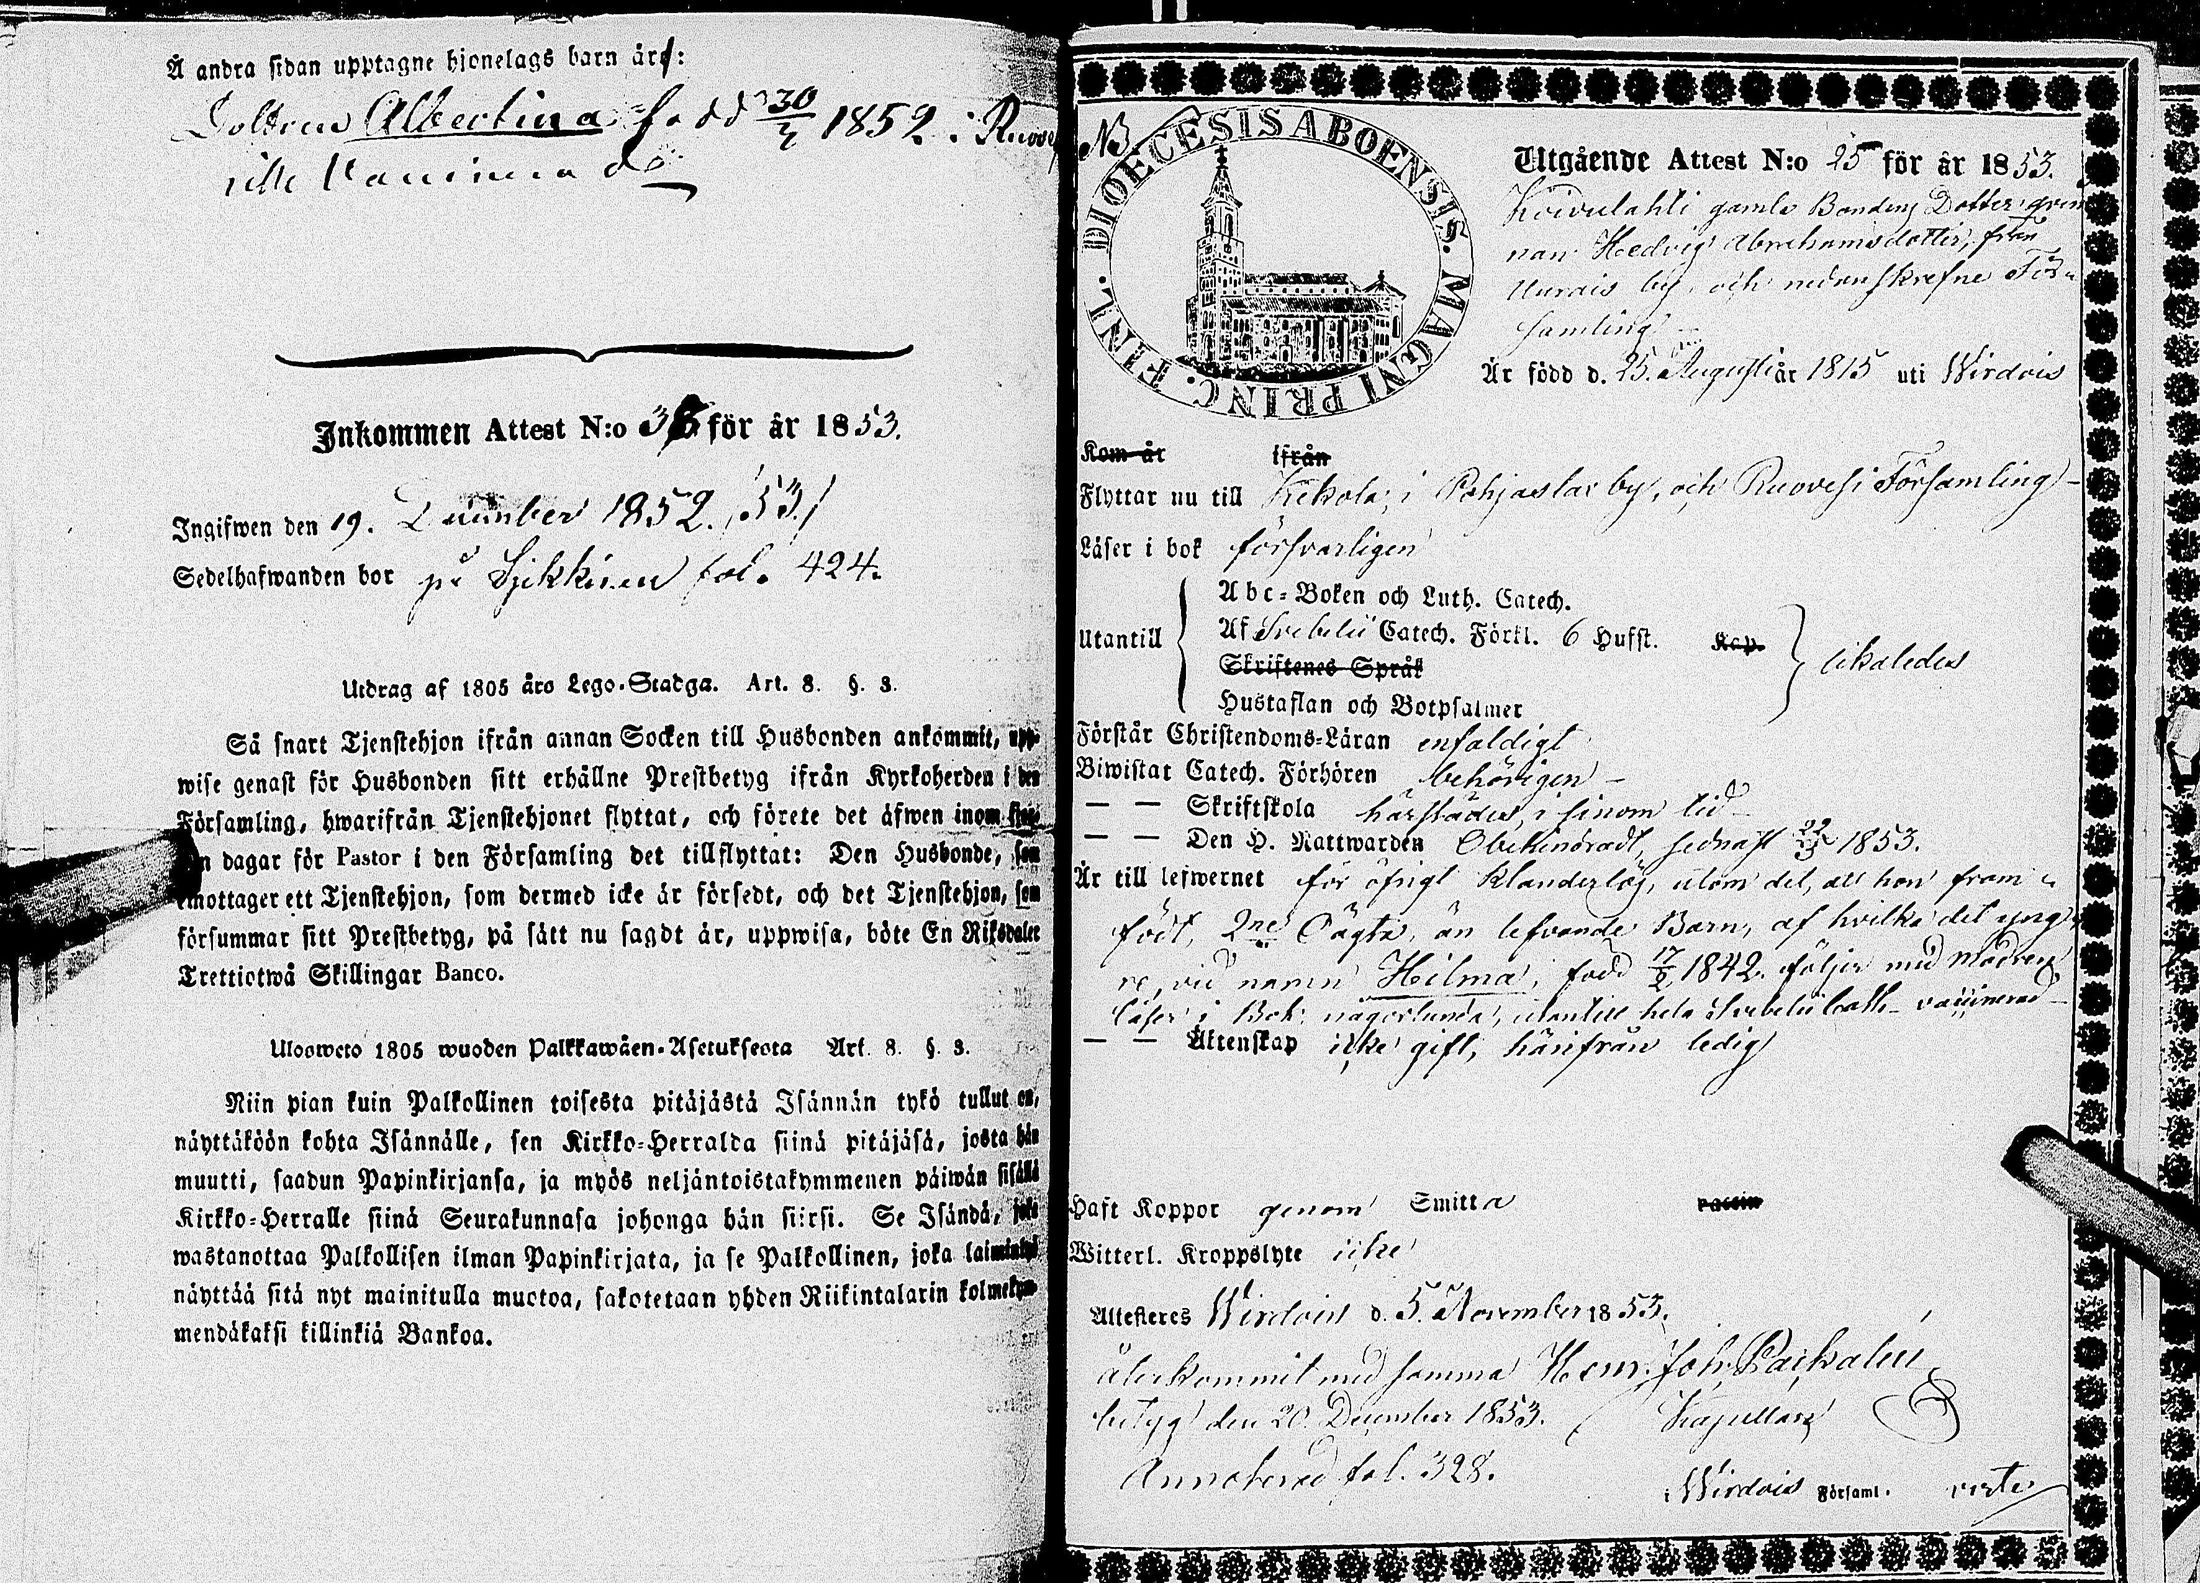 Å andra sidan upptagne hjonelags barn äro:
Dottren Albertina född 30/7 1852 i Ruove
icke Vaccinerad
Inkommen Attest N:o 38 för år 1853.
Ingifwen den 19. December 1852. /53./
Sedelhafwanden bor på Sjikkinen fol. 424.
Utdrag af 1805 års Lego-Stadga. Art. 8. §. 3.
Så snart Tjenstehjon ifrån annan Socken till Husbonden ankommit, upp-
wise genast för Husbonden sitt erhållne Prestbetyg ifrån Kyrkoherden i den
Församling, hwarifrån Tjenstehjonet flyttat, och förete det äfwen inom fjor-
ton dagar för Pastor i den Församling det tillflyttat: Den Husbonde, som
emottager ett Tjenstehjon, som dermed icke är försedt, och det Tjenstehjon, som
försummar sitt Prestbetyg, på sätt nu sagdt är, uppwisa, böte En Riksdaler
Trettiotwå Skillingar Banco.
Ulosweto 1805 wuoden Palkkawäen-Asetuksesta Art. 8. §. 3.
Niin pian kuin Palkollinen toisesta pitäjästä Isännän tykö tullut on,
näyttäköön kohta Isännälle, sen Kirkko-Herralda siinä pitäjäsä, josta hän
muutti, saadun Papinkirjansa, ja myös neljäntoistakymmenen päiwän sisällä
Kirkko-Herralle siinä Seurakunnasa johonga hän siirsi. Se Isändä, joka
wastanottaa Palkollisen ilman Papinkirjata, ja se Palkollinen, joka laiminlyö
näyttää sitä nyt mainitulla muotoa, sakotetaan yhden Riikintalarin kolmekym-
mendäkaksi killinkiä Bankoa.
NB
DIOECESIS ABOENSIS. MAGNI PRINC. FINL.
Utgående Attest N:o 25 för år 1853.
Koivulahti gamle Bondens Dotter, qvin
nan Hedvig Abrahamsdotter, från
Uurais by, och nedanskrefne För-
samling
Är född d. 25. Augusti år 1815 uti Wirdois
Kom år ifrån
Flyttar nu till Kekola, i Pohjaslax by, och Ruovesi Församling
Läser i bok försvarligen
Utantill
Abc-Boken och Luth. Catech.
Af Svebelii Catech. Förkl. 6 Hufst. Kap.
Skriftenes Språk
Hustaflan och Botpsalmer
likaledes
Förstår Christendoms-Läran enfaldigt
Biwistat Catech. Förhören behörigen
— — Skriftskola härstädes, i sinom tid
— — Den H. Nattwarden Obehindradt, sednast 22/5 1853.
Är till lefwernet för öfrigt klanderlös, utom det, att hon fram-
födt, 2ne Oägta, än lefvande Barn, af hvilka det yng-
re, vid namn Hilma, född 17/2 1842. följer med Modren,
läser i Bok någorlunda, utantill hela Svebelii Cath. vaccinerad
— — Äktenskap icke gift, härifrån ledig
Haft Koppor genom Smitta vaccin
Witterl. Kroppslyte icke
Attesteres Wirdois d. 5. November 1853.
Återkommit med samma Herm. Joh.
betyg den 20. December 1853. Kapellan
Annoterad fol. 328.
i Wirdois Församl.